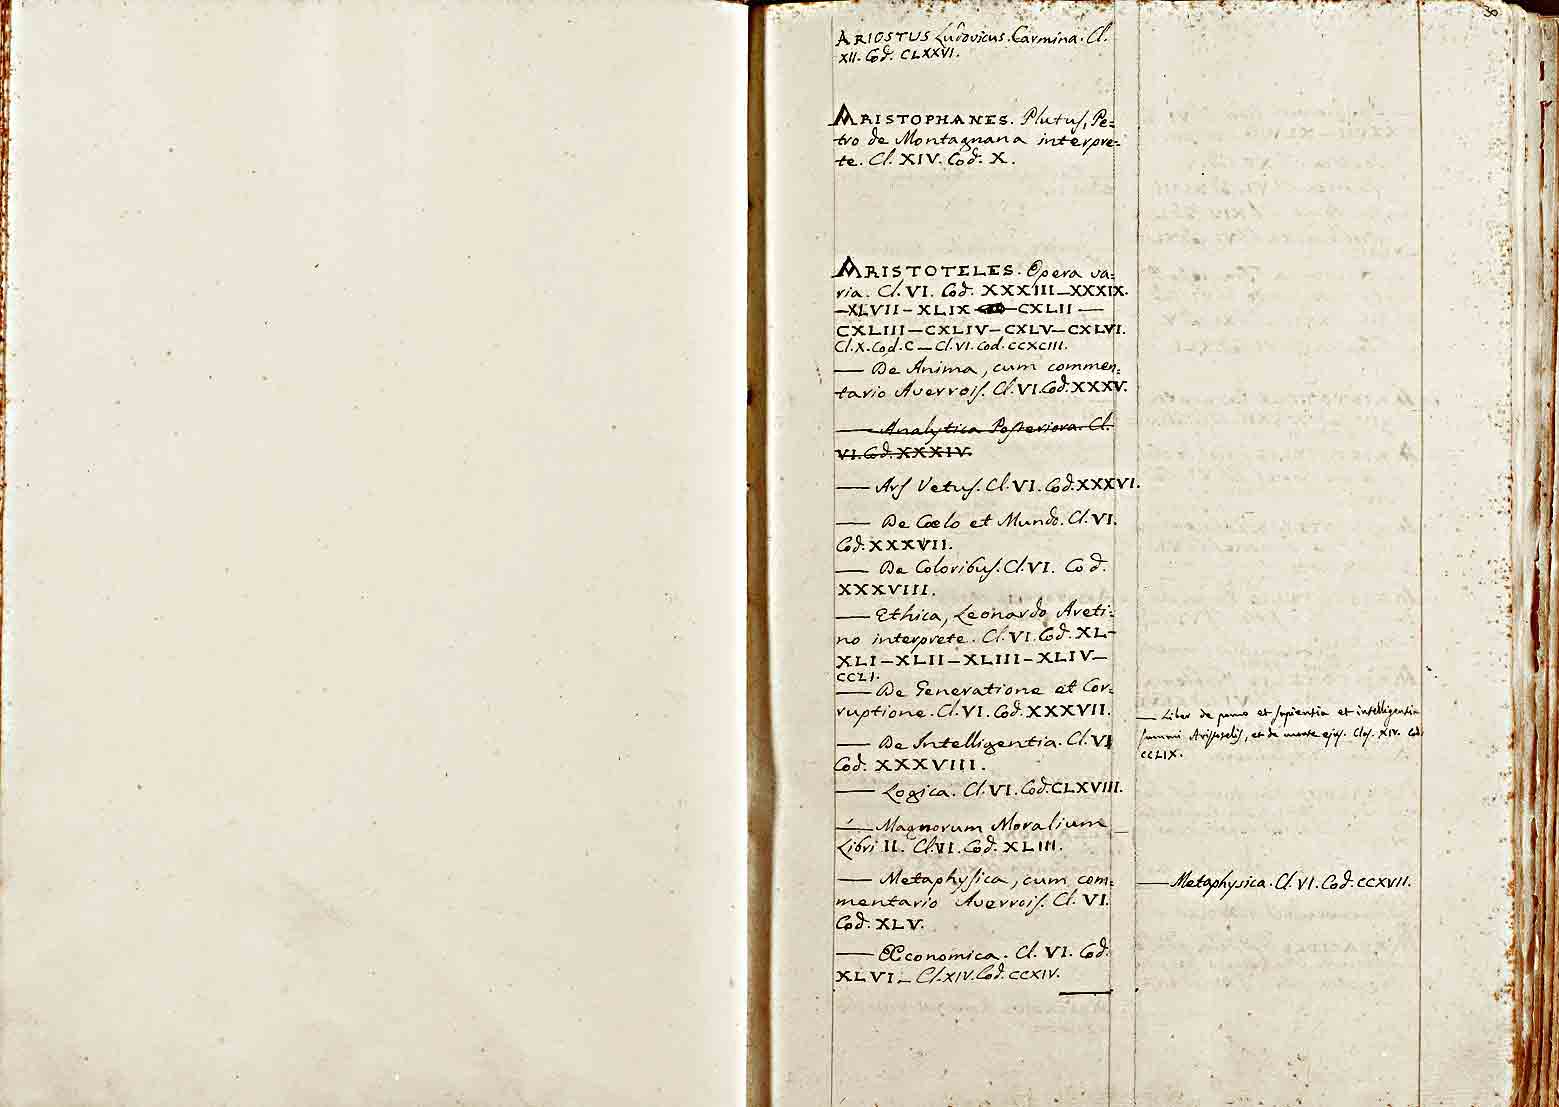 30
ARIOSTUS Ludovicus. Carmina. Cl.
XII. Cod. CLXXVI.
ARISTOPHANES. Plutus, Pe=
tro de Montagnana interpre=
te. Cl. XIV. Cod. X.
ARISTOTELES. Opera va=
ria. Cl. VI. Cod. XXXIII—XXXIX.
—XLVII—XLIX—CXLII—
CXLIII—CXLIV—CXLV—CXLVI.
Cl. X. Cod. C—Cl. VI. Cod. CCXCIII.
— De Anima, cum commen=
tario Averrois. Cl. VI. Cod. XXXV.
— Analytica Posteriora. Cl.
VI. Cod. XXXIV.
— Ars Vetus. Cl. VI. Cod. XXXVI.
— De Cœlo et Mundo. Cl. VI.
Cod. XXXVII.
— De Coloribus. Cl. VI. Cod.
XXXVIII.
— Ethica, Leonardo Areti=
no interprete. Cl. VI. Cod. XL—
XLI—XLII—XLIII—XLIV—
CCLI.
— De Generatione et Cor=
ruptione. Cl. VI. Cod. XXXVII.
— De Intelligentia. Cl. VI
Cod. XXXVIII.
— Logica. Cl. VI. Cod. CLXVIII.
— Magnorum Moralium
Libri II. Cl. VI. Cod. XLIII.
— Metaphysica, cum com=
mentario Averrois. Cl. VI.
Cod. XLV.
— Œconomica. Cl. VI. Cod.
XLVI— Cl. XIV. Cod. CCXIV.
— Liber de pomo et sapientia et intelligentia
summi Aristotelis, et de morte ejus. Clas. XIV. Cod.
CCLIX.
— Metaphysica. Cl. VI. Cod. CCXVII.